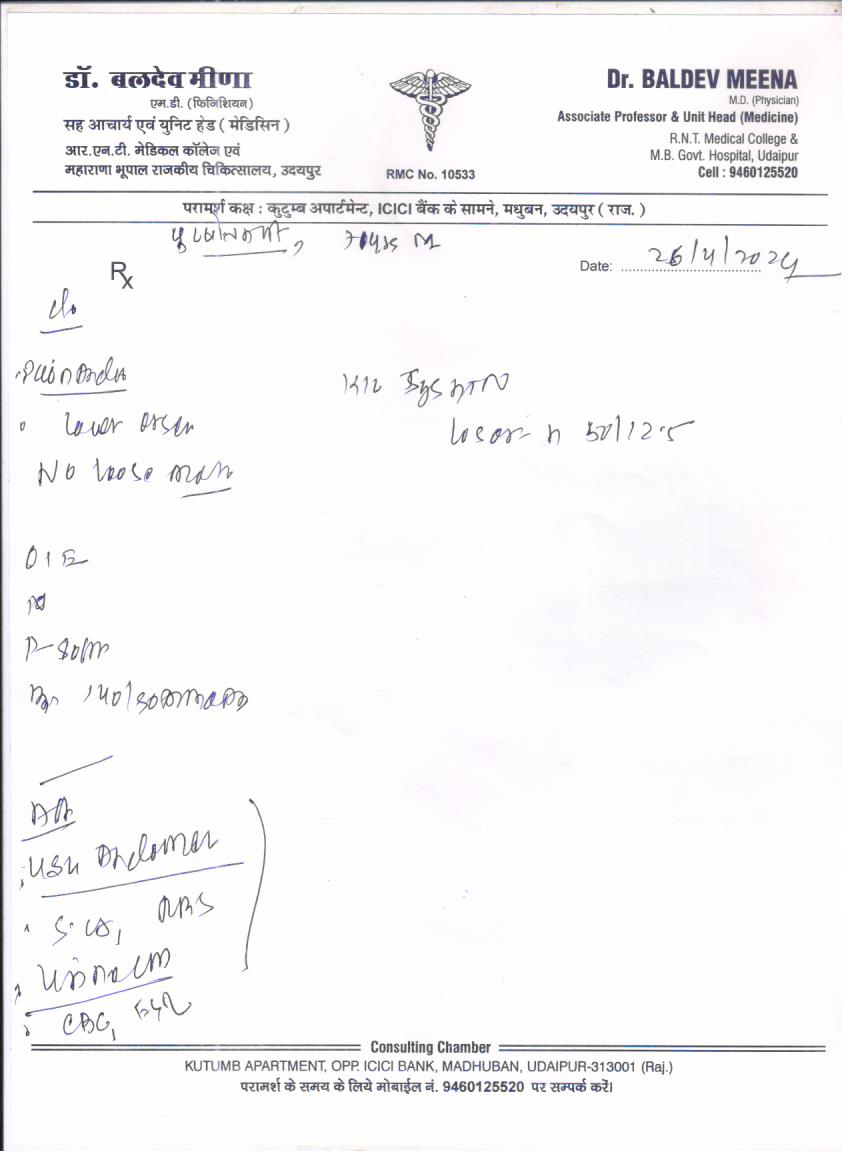 डॉ. बलदेव मीणा
एम.डी. (फिजिशियन)
सह आचार्य एवं युनिट हेड ( मेडिसिन )
आर.एन.टी. मेडिकल कॉलेज एवं
महाराणा भूपाल राजकीय चिकित्सालय, उदयपुर
RMC No. 10533
Dr. BALDEV MEENA
M.D. (Physician)
Associate Professor & Unit Head (Medicine)
R.N.T. Medical College &
M.B. Govt. Hospital, Udaipur
Cell : 9460125520
परामर्श कक्ष : कुटुम्ब अपार्टमेन्ट, ICICI बैंक के सामने, मधुबन, उदयपुर ( राज. )
M
Date: 26/4/2024
Rx
c/o
Pain
lower
No loose
K/c Sys HTN
Losar-H 50/12.5
O/E
P-80/m
140/80
USG Abdomen
RBS
CBC, ESR
Consulting Chamber
KUTUMB APARTMENT, OPP. ICICI BANK, MADHUBAN, UDAIPUR-313001 (Raj.)
परामर्श के समय के लिये मोबाईल नं. 9460125520 पर सम्पर्क करें।